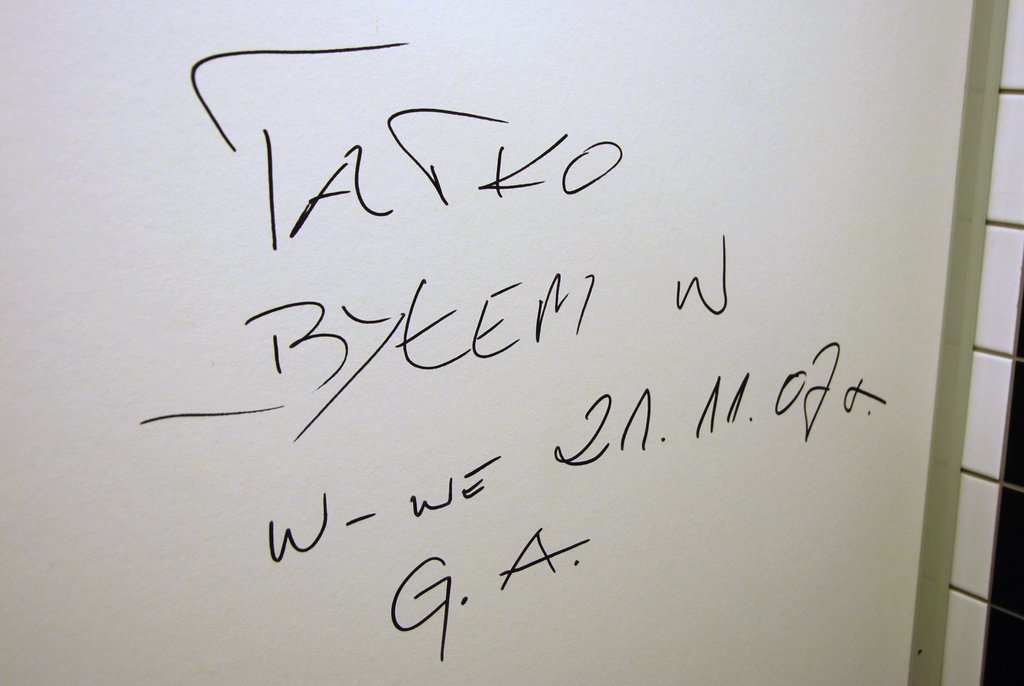 TATKO
BYŁEM W
W-WE 21.11.07r.
G.A.